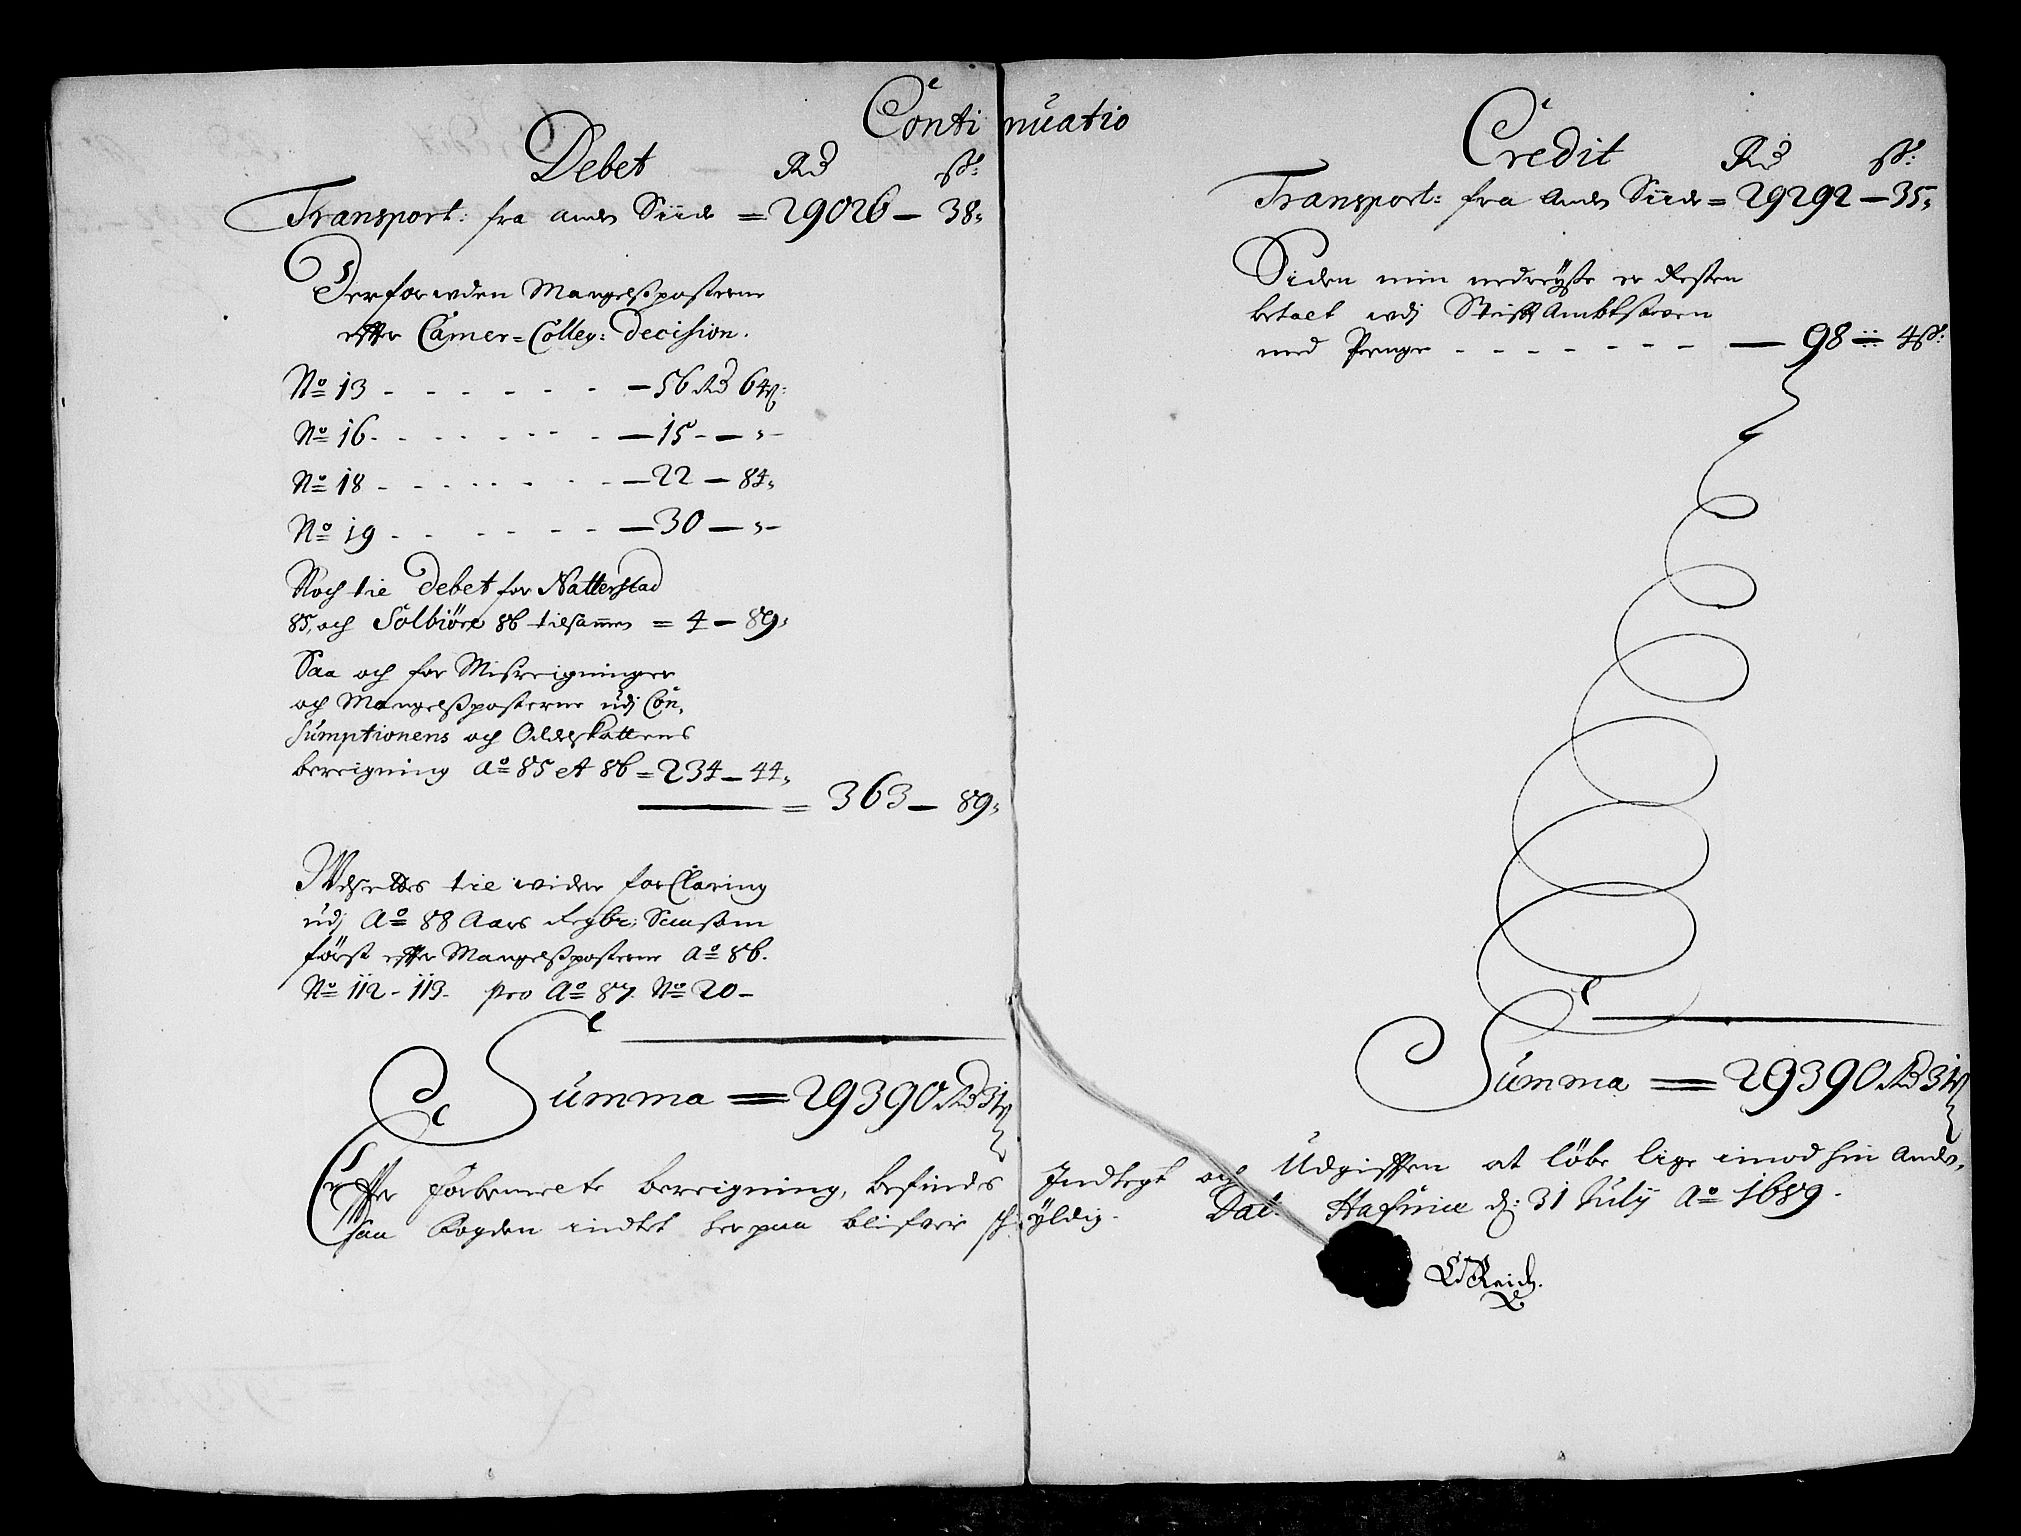 Continuatio
Debet Rd ß:
Transport: fra anden Siide = 29026 – 38,
Derforuden Mangelßposterne
effter Camer=Colleg: Decision.
No 13 - - - - - - – 56 Rd 64ß:
No 16 - - - - - - – 15 – „ –
No 18 - - - - - - – 22 – 84,
No 19 - - - - - - – 30 – „ –
Noch til Debet for Natterstad
85, och Solbiöre 86 tilsammen = 4 – 89,
Saa och for Misreigninger
och Mangelßposterne udj Con,
sumptionens och Oddelskattens
bereigning Ao 85 et 86 = 234 – 44,
= 363 – 89,
Udsettes til wider forClaring
udj Ao 88 Aars Saasom
först effter Mangelßposterne Ao 86.
No 112 - 113 - pro Ao 87. No 20 –
Summa = 29390 Rd 31ß
Credit Rd ß:
Transport: fra anden Siide = 29292 – 35,
Siden min nedreyße er Resten
betalt udj StifftAmbtstuen
med Penge - - - - - - - – 98 – 4ß:
Summa = 29390 Rd 31ß
Effter forbemelte bereigning, befindes Indtegt och Udgifften at löbe lige imod hin anden,
saa Fogden indtet her paa blifver schyldig. Dat. Hafniæ d: 31 Julij Ao 1689.
Reich.